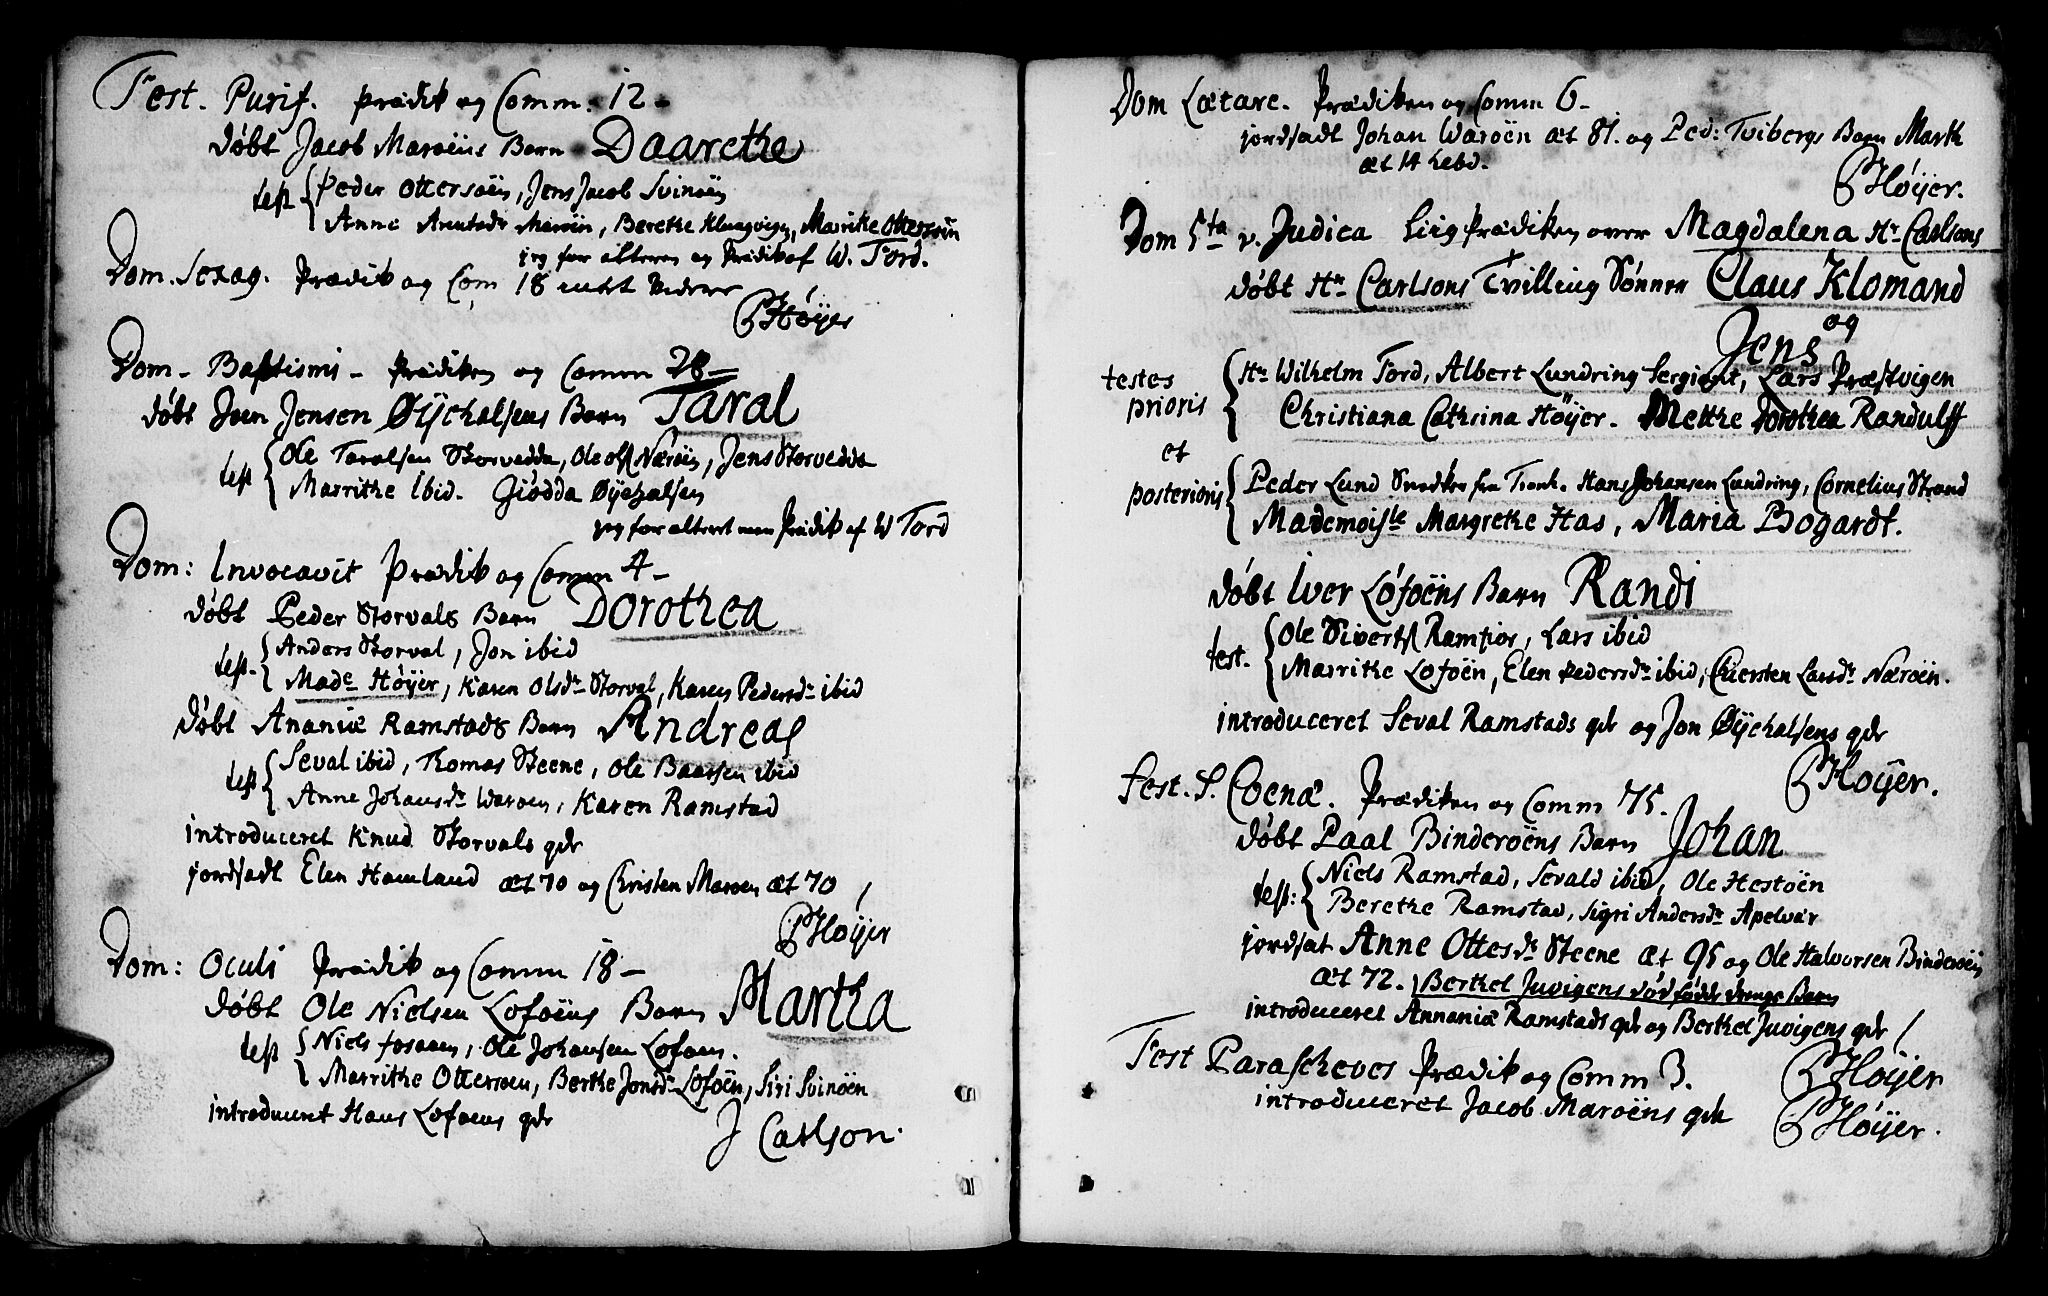 Fest. Purif. Prædik og Comm. 12 -
døbt Jacob Marøens Barn Daarethe
test Peder Ottersøen, Jens Jacob Svinøen
Anne Marøen, Berethe Klungvigen, Marrithe Ottersøen
jeg for alteren og Prædik af W. Tord.
Dom. Sexag. Prædik og Com 18 intet videre
PHøyer
Dom - Baptismi - Prædiken og Comm 28 -
døbt Joen Jensen Øychalsens Barn Taral
test Ole Taralsen Storvedda, Ole Ols Nærøen, Jens Storvedde
Marrithe Ibid. Giødda Øychalsen
jeg for alteret men Prædik af W Tord
Dom: Invocavit Prædik og Comm 4 -
døbt Peder Storvals Barn Dorothea
test. Anders Storval, Jon ibid
Made Høyer, Karen Olsdr Storval, Karen Pedersdr ibid
døbt Ananiæ Ramstads Barn Andreas
test Seval ibid, Thomas Steene, Ole Baarsen ibid
Anne Johansdr Warøen, Karen Ramstad
introduceret Knud Storvals qdr
jordsadt Elen Hamland æt 70 og Christen Marøen æt 70
PHøyer
Dom: Oculi Prædik og Comm 18 -
døbt Ole Nielsen Loføens Barn Martha
test Niels fosaaen, Ole Johansen Loføen.
Marrithe Ottersøen, Berthe Jonsdr Loføen, Siri Svinøen
introduceret Hans Loføens qdr
J Carlson.
Dom Lætare. Prædiken og Comm 6 -
jordsadt Johan Warøen æt 81. og Ped: Tvibergs Barn Marth
æt 14 hebd.
PHøyer.
Dom 5ta v. Judica Liigprædiken over Magdalena Hr Carlsons
døbt Hr Carlsons Tvilling Sønner Claus Klomand
og
Jens
testes prioris Hr Wilhelm Tord, Albert Lundring Sergiant, Lars Præstvigen
Christiana Cathrina Høyer. Metthe Dorothea Randulff
et
posterioris Peder Lund Snedker fra Tronh. Hans Johansen Lundring, Cornelius Strand
Mademoislle Margrethe Has, Maria Bogardt.
døbt Iver Løføens Barn Randi
test. Ole Siverts Ramfior, Lars ibid
Marrithe Loføen, Elen Pedersdr ibid, Chiersten Larsdr Nærøen.
introduceret Seval Ramstads qdr og Jon Øychalsens qdr
PHøyer.
Fest. S. Coenæ. Prædiken og Comm 75.
døbt Paal Binderøens Barn Johan
test: Niels Ramstad, Sevald ibid, Ole Hestøen
Berethe Ramstad, Sigri Andersdr Apelvær
jordsat Anne Ottesdr Steene æt 95 og Ole Halvorsen Binderøen
æt 72. Berthel Juvigens død fødde drenge Barn
introduceret Annaniæ Ramstads qdr og Berthel Juvigens qdr
PHøyer
Fest Parascheves Prædik og Comm 3.
introduceret Jacob Marøens qdr
PHøyer.